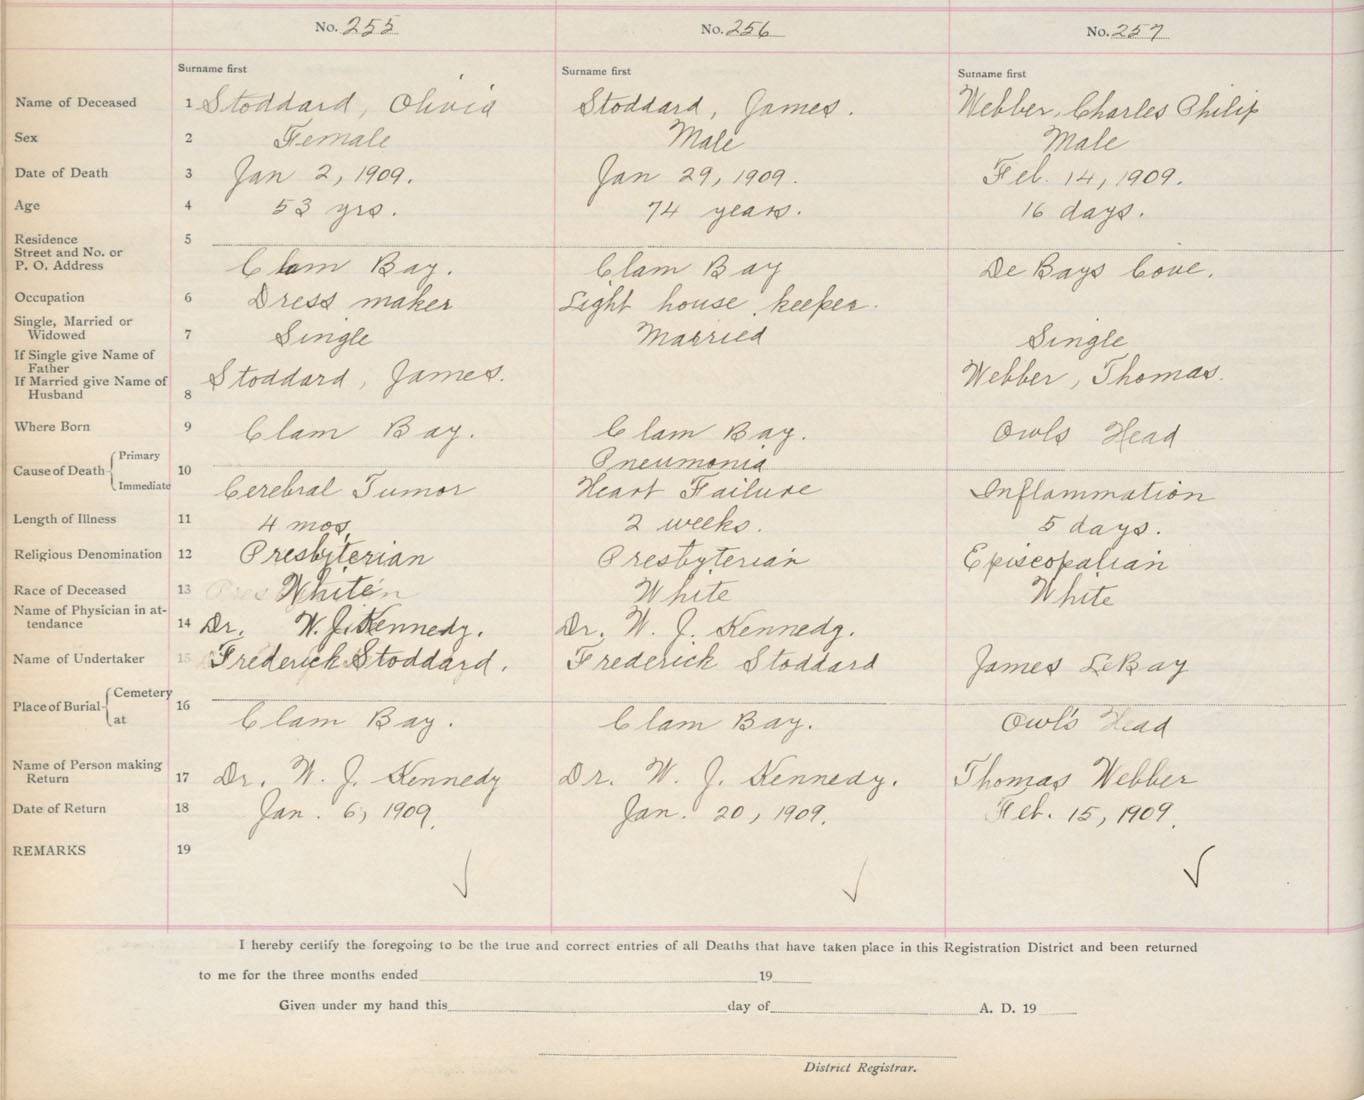 No. 255 No. 256 No. 257
Surname first Surname first Surname first
Name of Deceased 1 Stoddard, Olivia Stoddard, James. Webber, Charles Philip
Sex 2 Female Male Male
Date of Death 3 Jan 2, 1909. Jan 29, 1909. Feb. 14, 1909.
Age 4 53 yrs. 74 years. 16 days.
Residence 5
Street and No. or
P. O. Address Clam Bay. Clam Bay De Bays Cove.
Occupation 6 Dress maker Light house keeper.
Single, Married or
Widowed 7 Single Married Single
If Single give Name of
Father
If Married give Name of Stoddard, James. Webber, Thomas.
Husband 8
Where Born 9 Clam Bay. Clam Bay. Owls Head
Cause of Death Primary 10 Pneumonia
Immediate Cerebral Tumor Heart Failure Inflammation
Length of Illness 11 4 mos. 2 weeks. 5 days.
Religious Denomination 12 Presbyterian Presbyterian Episcopalian
Race of Deceased 13 White White White
Name of Physician in at-
tendance 14 Dr. W. J. Kennedy. Dr. W. J. Kennedy.
Name of Undertaker 15 Frederick Stoddard. Frederick Stoddard James LeBay
Place of Burial Cemetery 16
at Clam Bay. Clam Bay. Owl's Head
Name of Person making
Return 17 Dr. W. J. Kennedy Dr. W. J. Kennedy. Thomas Webber
Date of Return 18 Jan. 6, 1909. Jan. 20, 1909. Feb. 15, 1909.
REMARKS 19
I hereby certify the foregoing to be the true and correct entries of all Deaths that have taken place in this Registration District and been returned
to me for the three months ended 19
Given under my hand this day of A. D. 19
District Registrar.